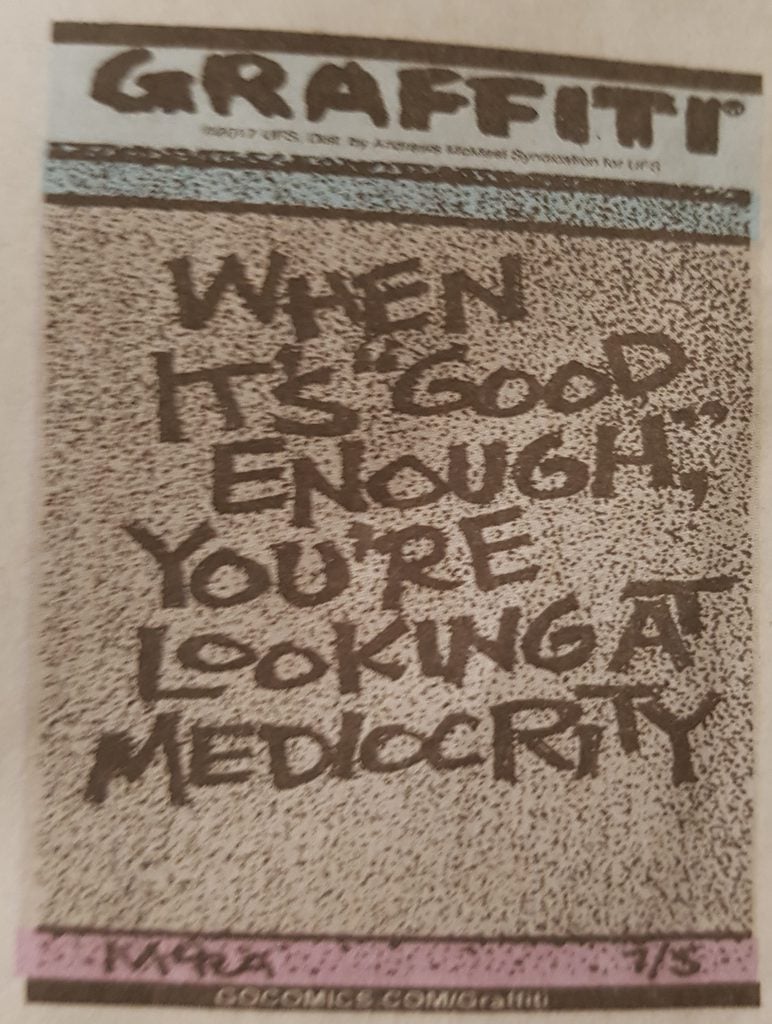 GRAFFITI®
©2017 UFS, Dist. by Andrews McMeel Syndication for UFS
WHEN
IT'S "GOOD
ENOUGH,"
YOU'RE
LOOKING AT
MEDIOCRITY
7/5
GOCOMICS.COM/Graffiti